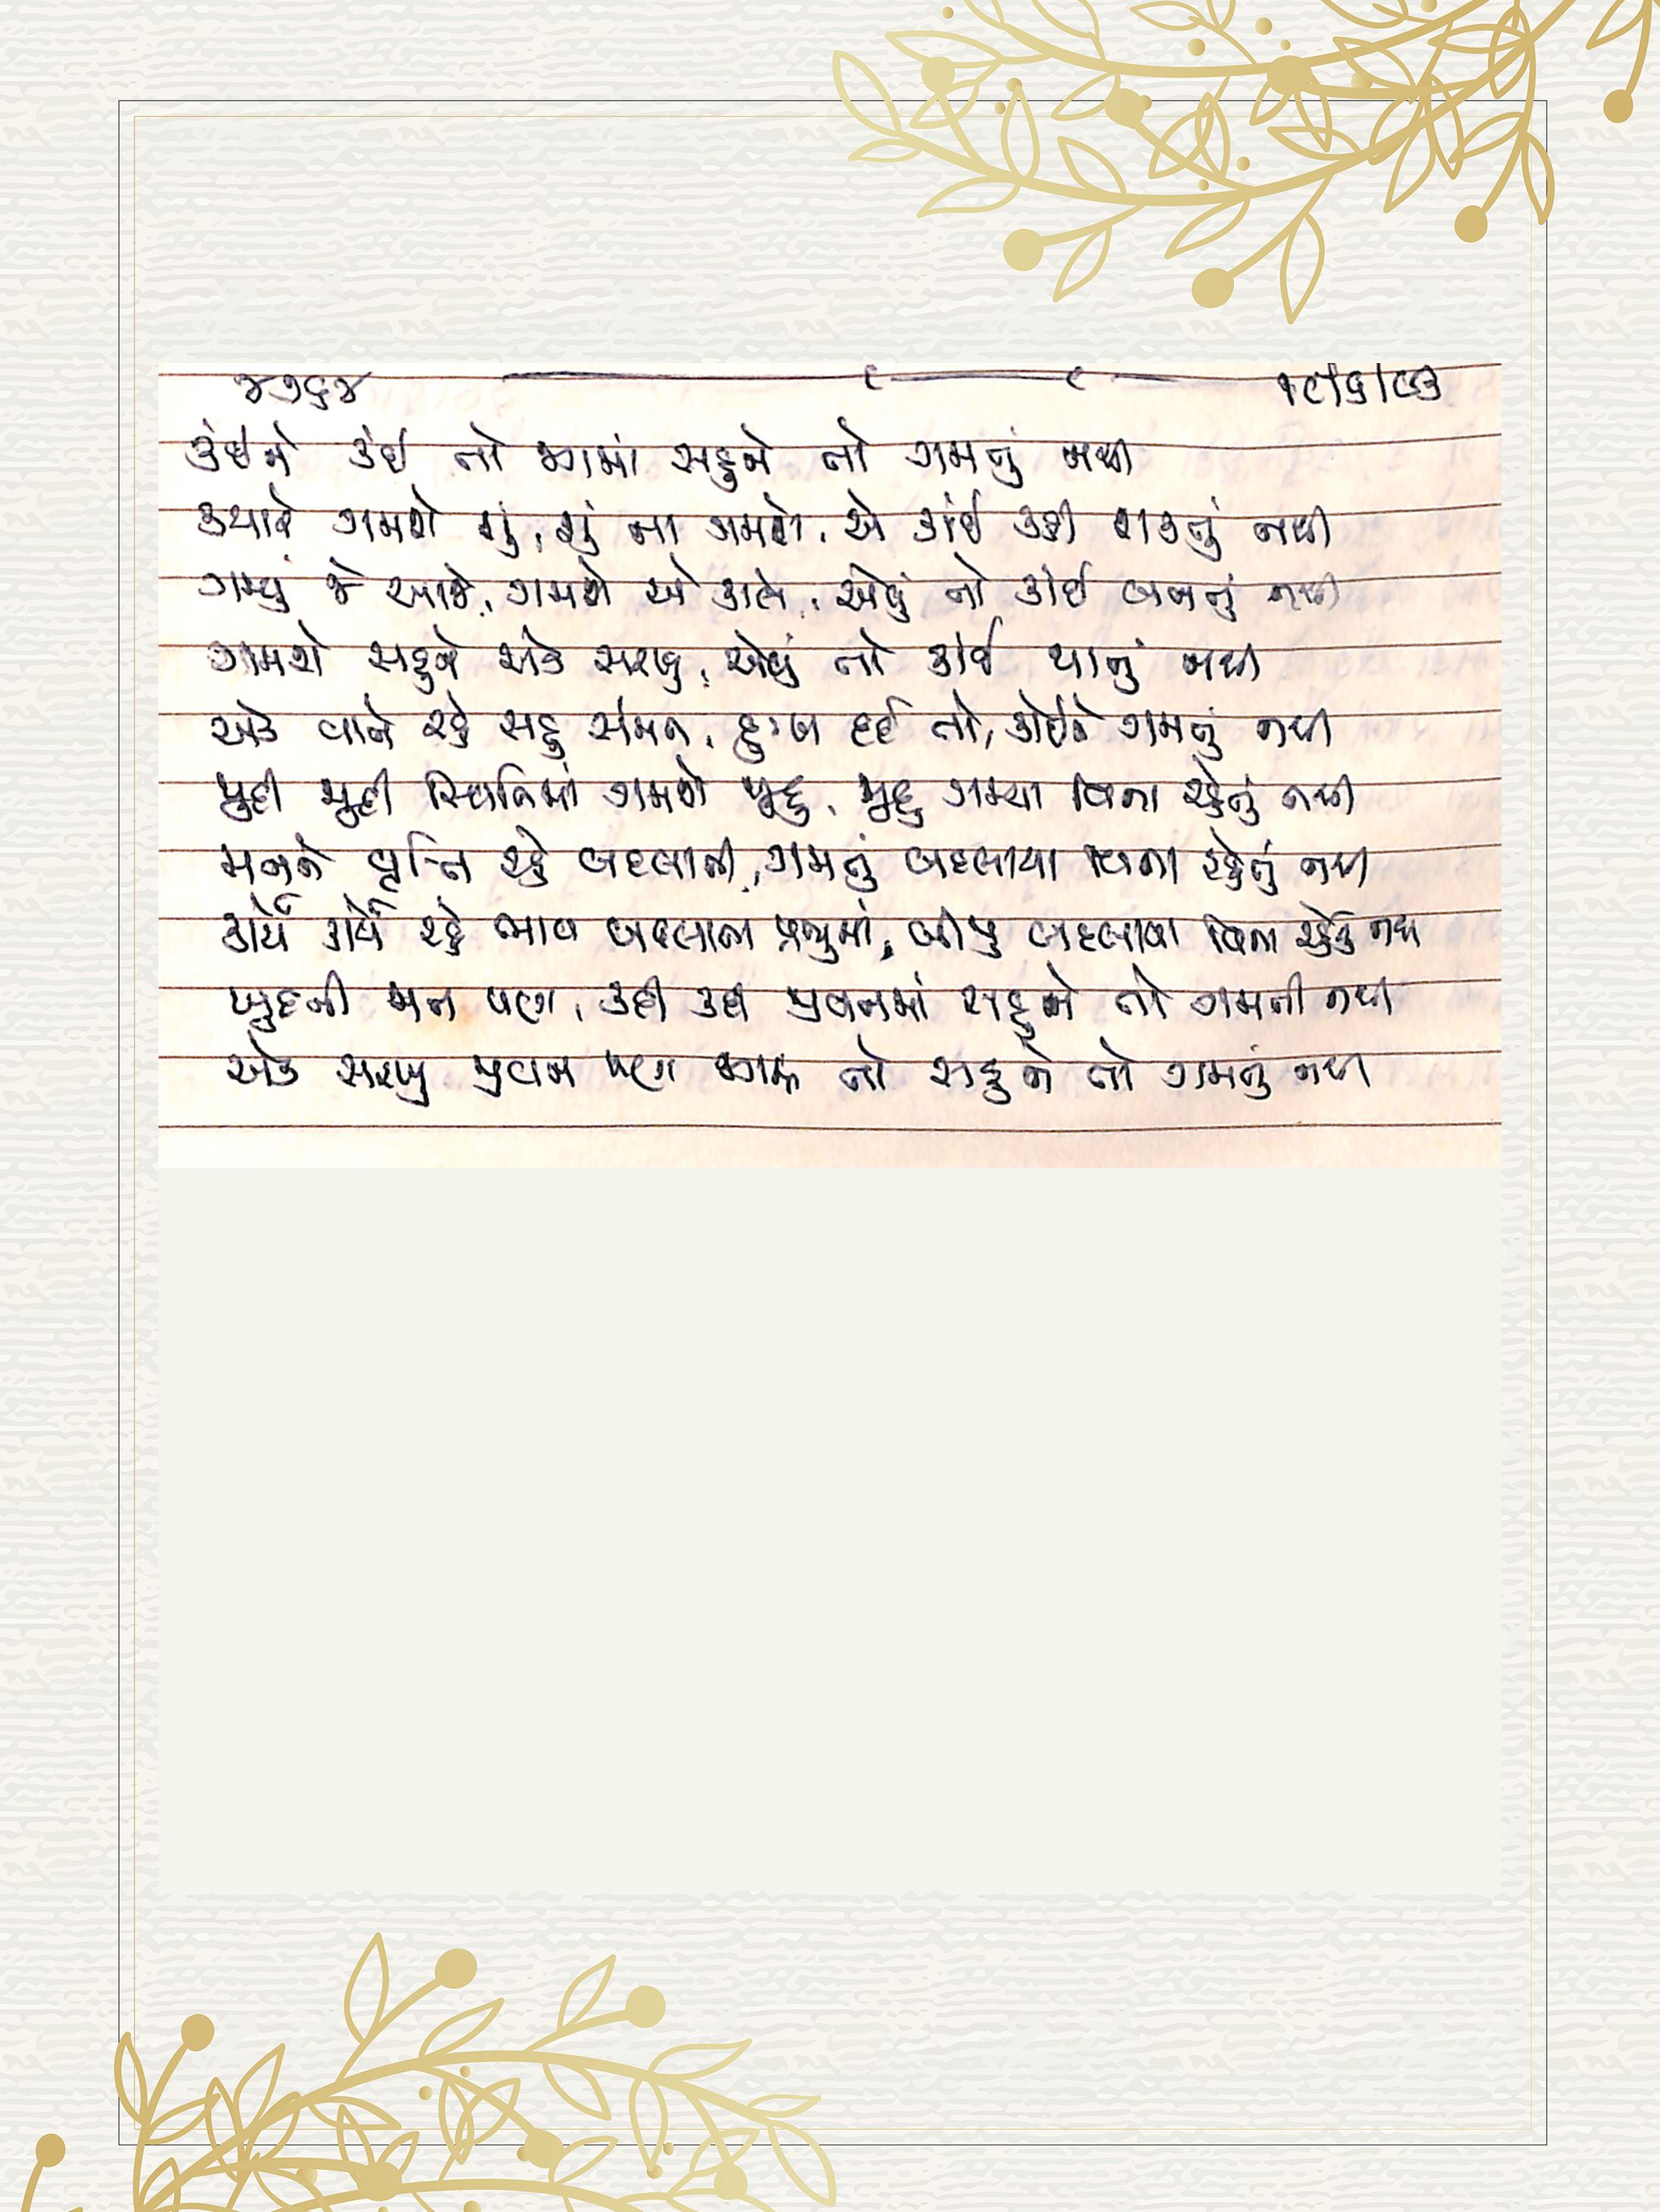 ૪૭૬૪ ૧૯/૬/૯૩
કંઈને કંઈ તો જગમાં સહુને તો ગમતું નથી
ક્યારે ગમશે શું, શું ના ગમશે, એ કાંઈ કહી શકાતું નથી
ગમ્યું જે આજે, ગમશે એ કાલે, એવું તો કાંઈ બનતું નથી
ગમશે સહુને એક સરખું, એવું તો કાંઈ થાતું નથી
એક વાતે રહે સહુ સંમત, દુઃખ દર્દ તો, કોઈને ગમતું નથી
જુદી જુદી સ્થિતિમાં ગમશે જુદુ, જુદુ ગમ્યા વિના રહેતું નથી
મનને વૃત્તિ રહે બદલાતી, ગમતું બદલાયા વિના રહેતું નથી
કાર્યે કાર્યે રહે ભાવ બદલાતા પ્રભુમાં, બીજુ બદલાયા વિના રહેતુ નથી
ખુદની મન પણ, કદી કદી જીવનમાં સહુને તો ગમતી નથી
એક સરખુ જીવન પણ જગમાં તો સહુને તો ગમતું નથી